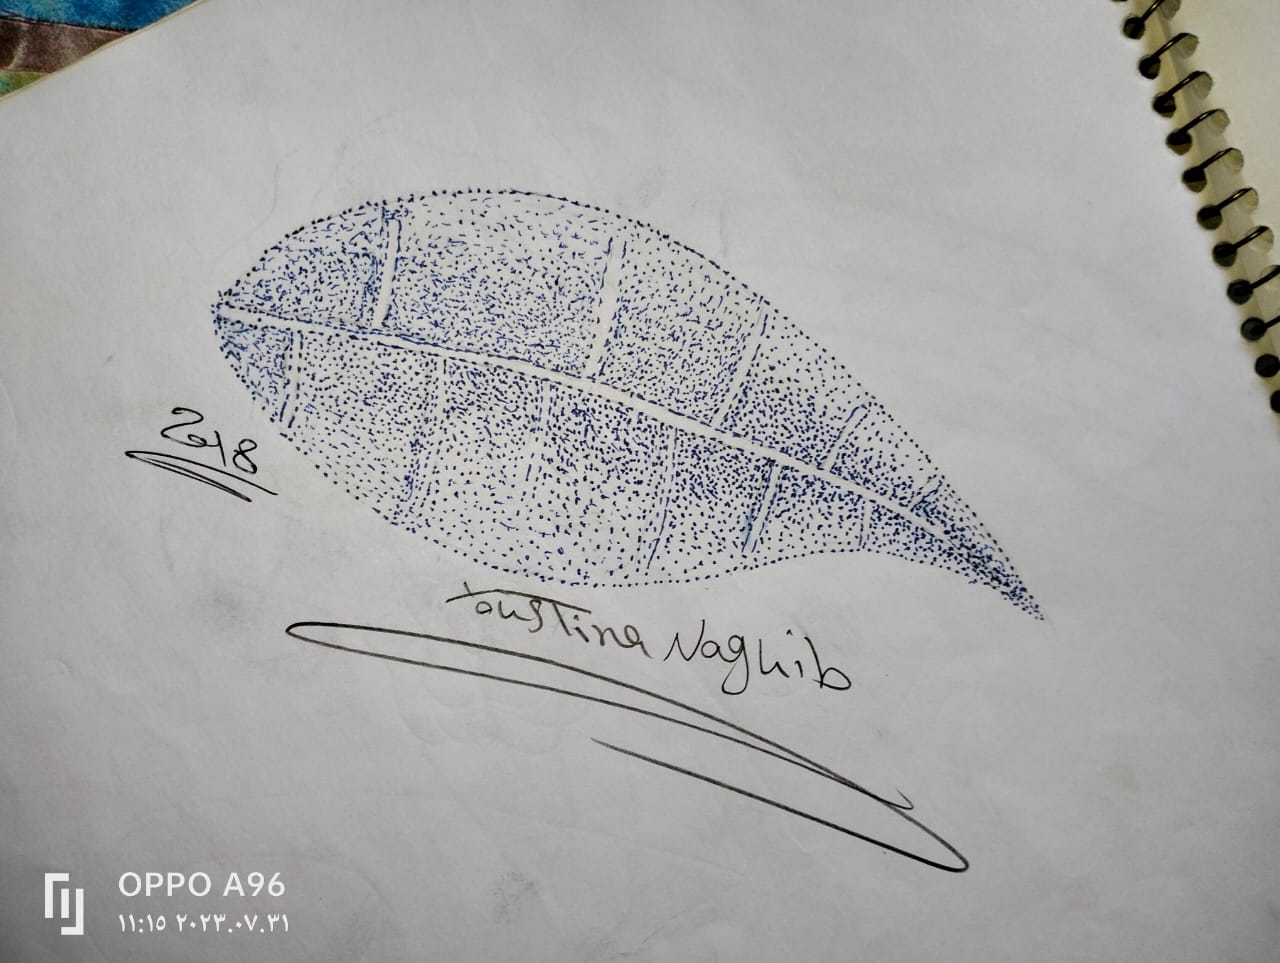 2018
Toustina Naghib
OPPO A96
١١:١٥ ٢٠٢٣.٠٧.٣١